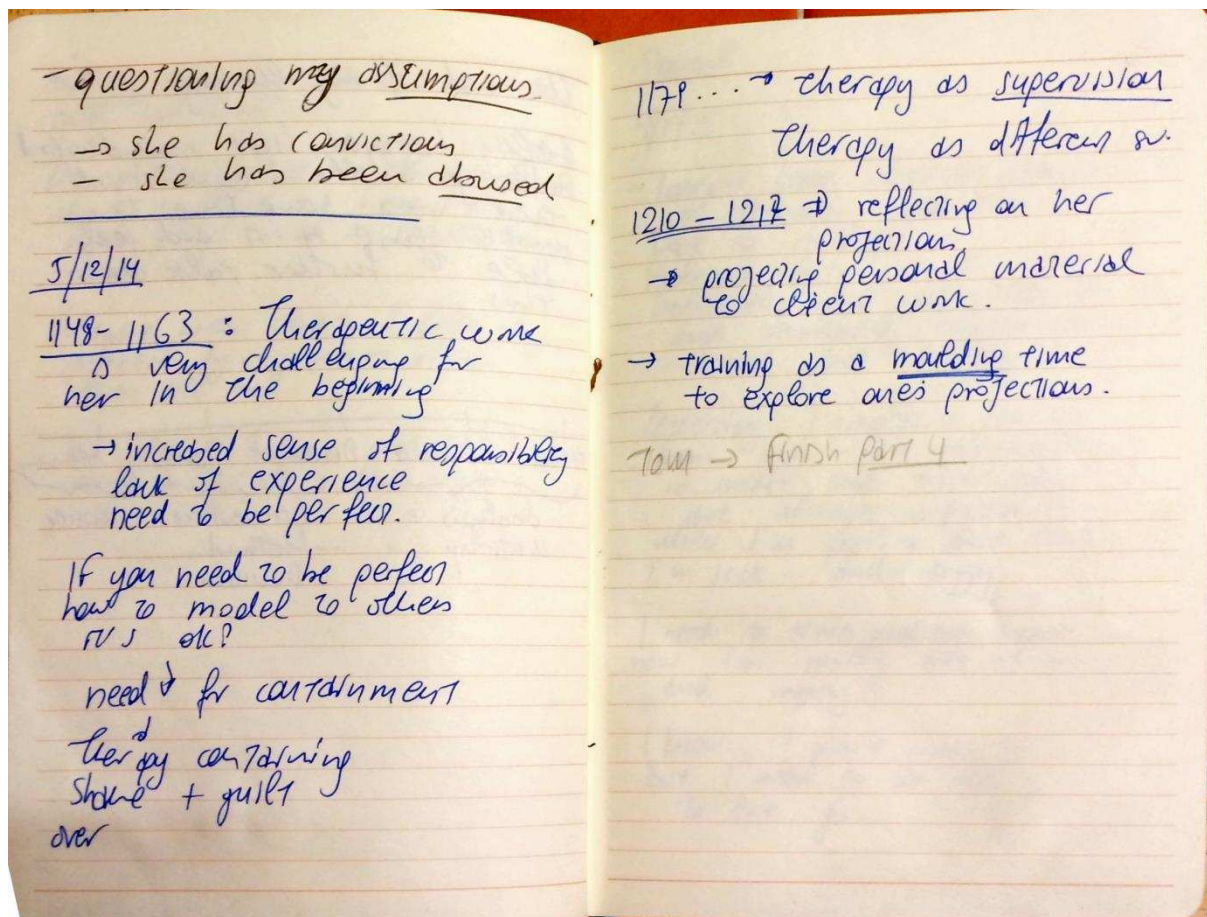 - questioning my assumptions
→ she has convictions
- she has been abused
5/12/14
1148-1163 : Therapeutic work
is very challenging for
her in the beginning
→ increased sense of responsibility
lack of experience
need to be perfect.
If you need to be perfect
how to model to others
it's ok?
need for containment
therapy containing
shame + guilt
over
1179... → therapy as supervision
therapy as different sv.
1210 - 1217 → reflecting on her
projections
→ projecting personal material
to client work.
→ training as a moulding time
to explore one's projections.
Tom → Finish part 4